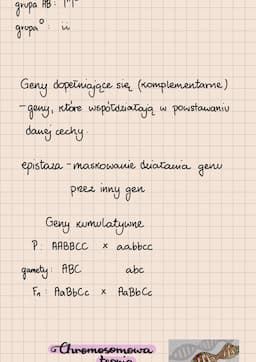 grupa AB:
grupa 0: ii
Geny dopełniające się (komplementarne)
-geny, które współdziałają w powstawaniu
danej cechy.
epistaza - maskowanie działania genu
przez inny gen
Geny kumulatywne
P: AABBCC × aabbcc
gamety: ABC abc
F₁: AaBbCc × AaBbCc
Chromosomowa
teoria